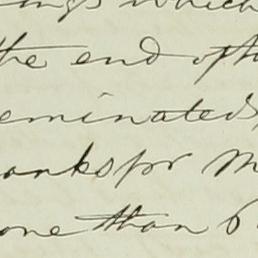 ngs which
the end of th
eminated,
anks for M
one than 6